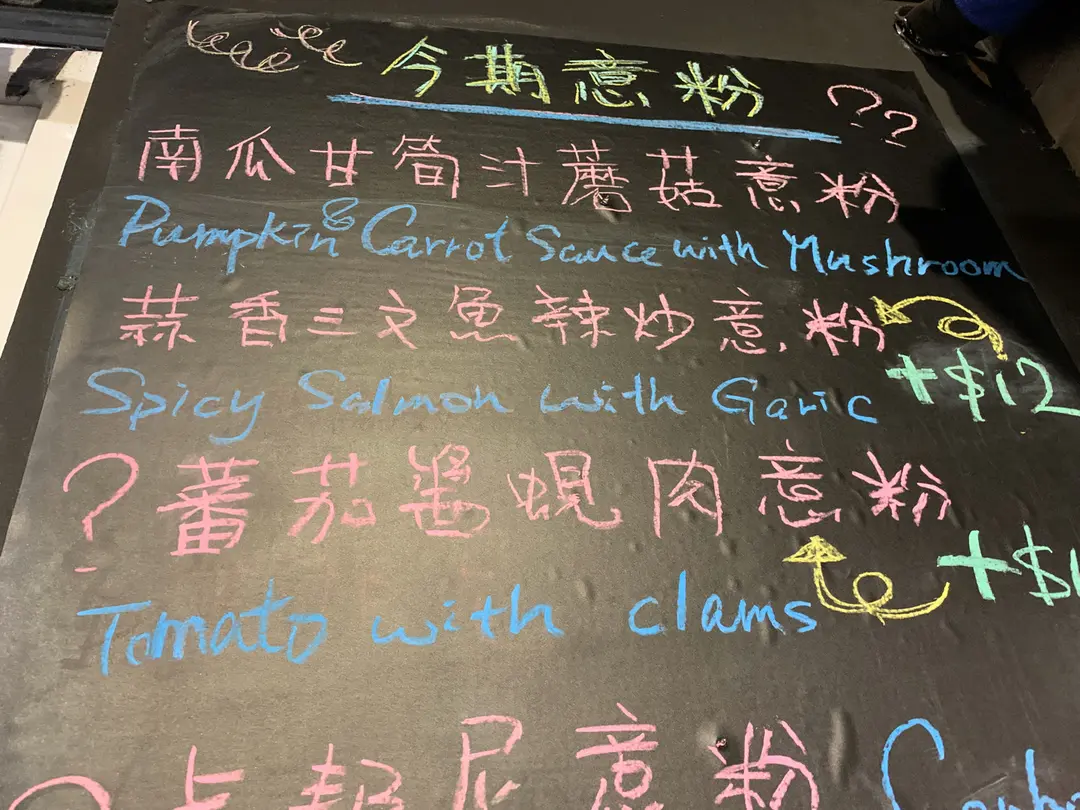 今期意粉 ??
南瓜甘筍汁蘑菇意粉
Pumpkin & Carrot Sauce with Mushroom
蒜香三文魚辣炒意粉
Spicy Salmon with Garic +$12
?蕃茄醬蜆肉意粉
Tomato with clams +$1
?卡邦尼意粉